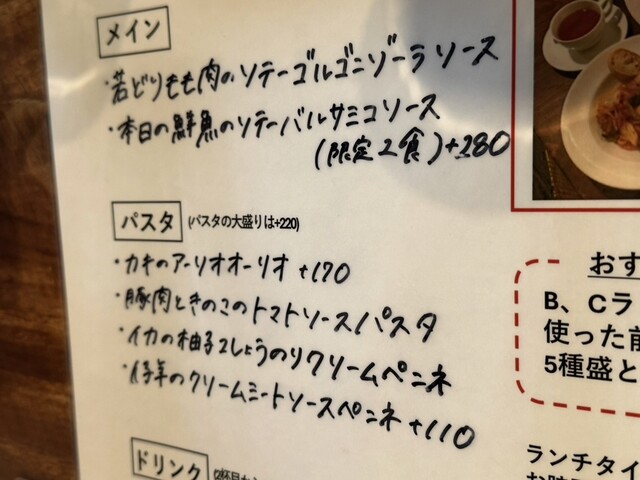 メイン
・若どりもも肉のソテーゴルゴンゾーラソース
・本日の鮮魚のソテーバルサミコソース
(限定2食)+280
パスタ (パスタの大盛りは+220)
・カキのアーリオオーリオ +170
・豚肉ときのこのトマトソースパスタ
・イカの柚子こしょうのりクリームペンネ
・仔羊のクリームミートソースペンネ +110
ドリンク (2杯目から
おす
B、Cラ
使った前
5種盛と
ランチタイ